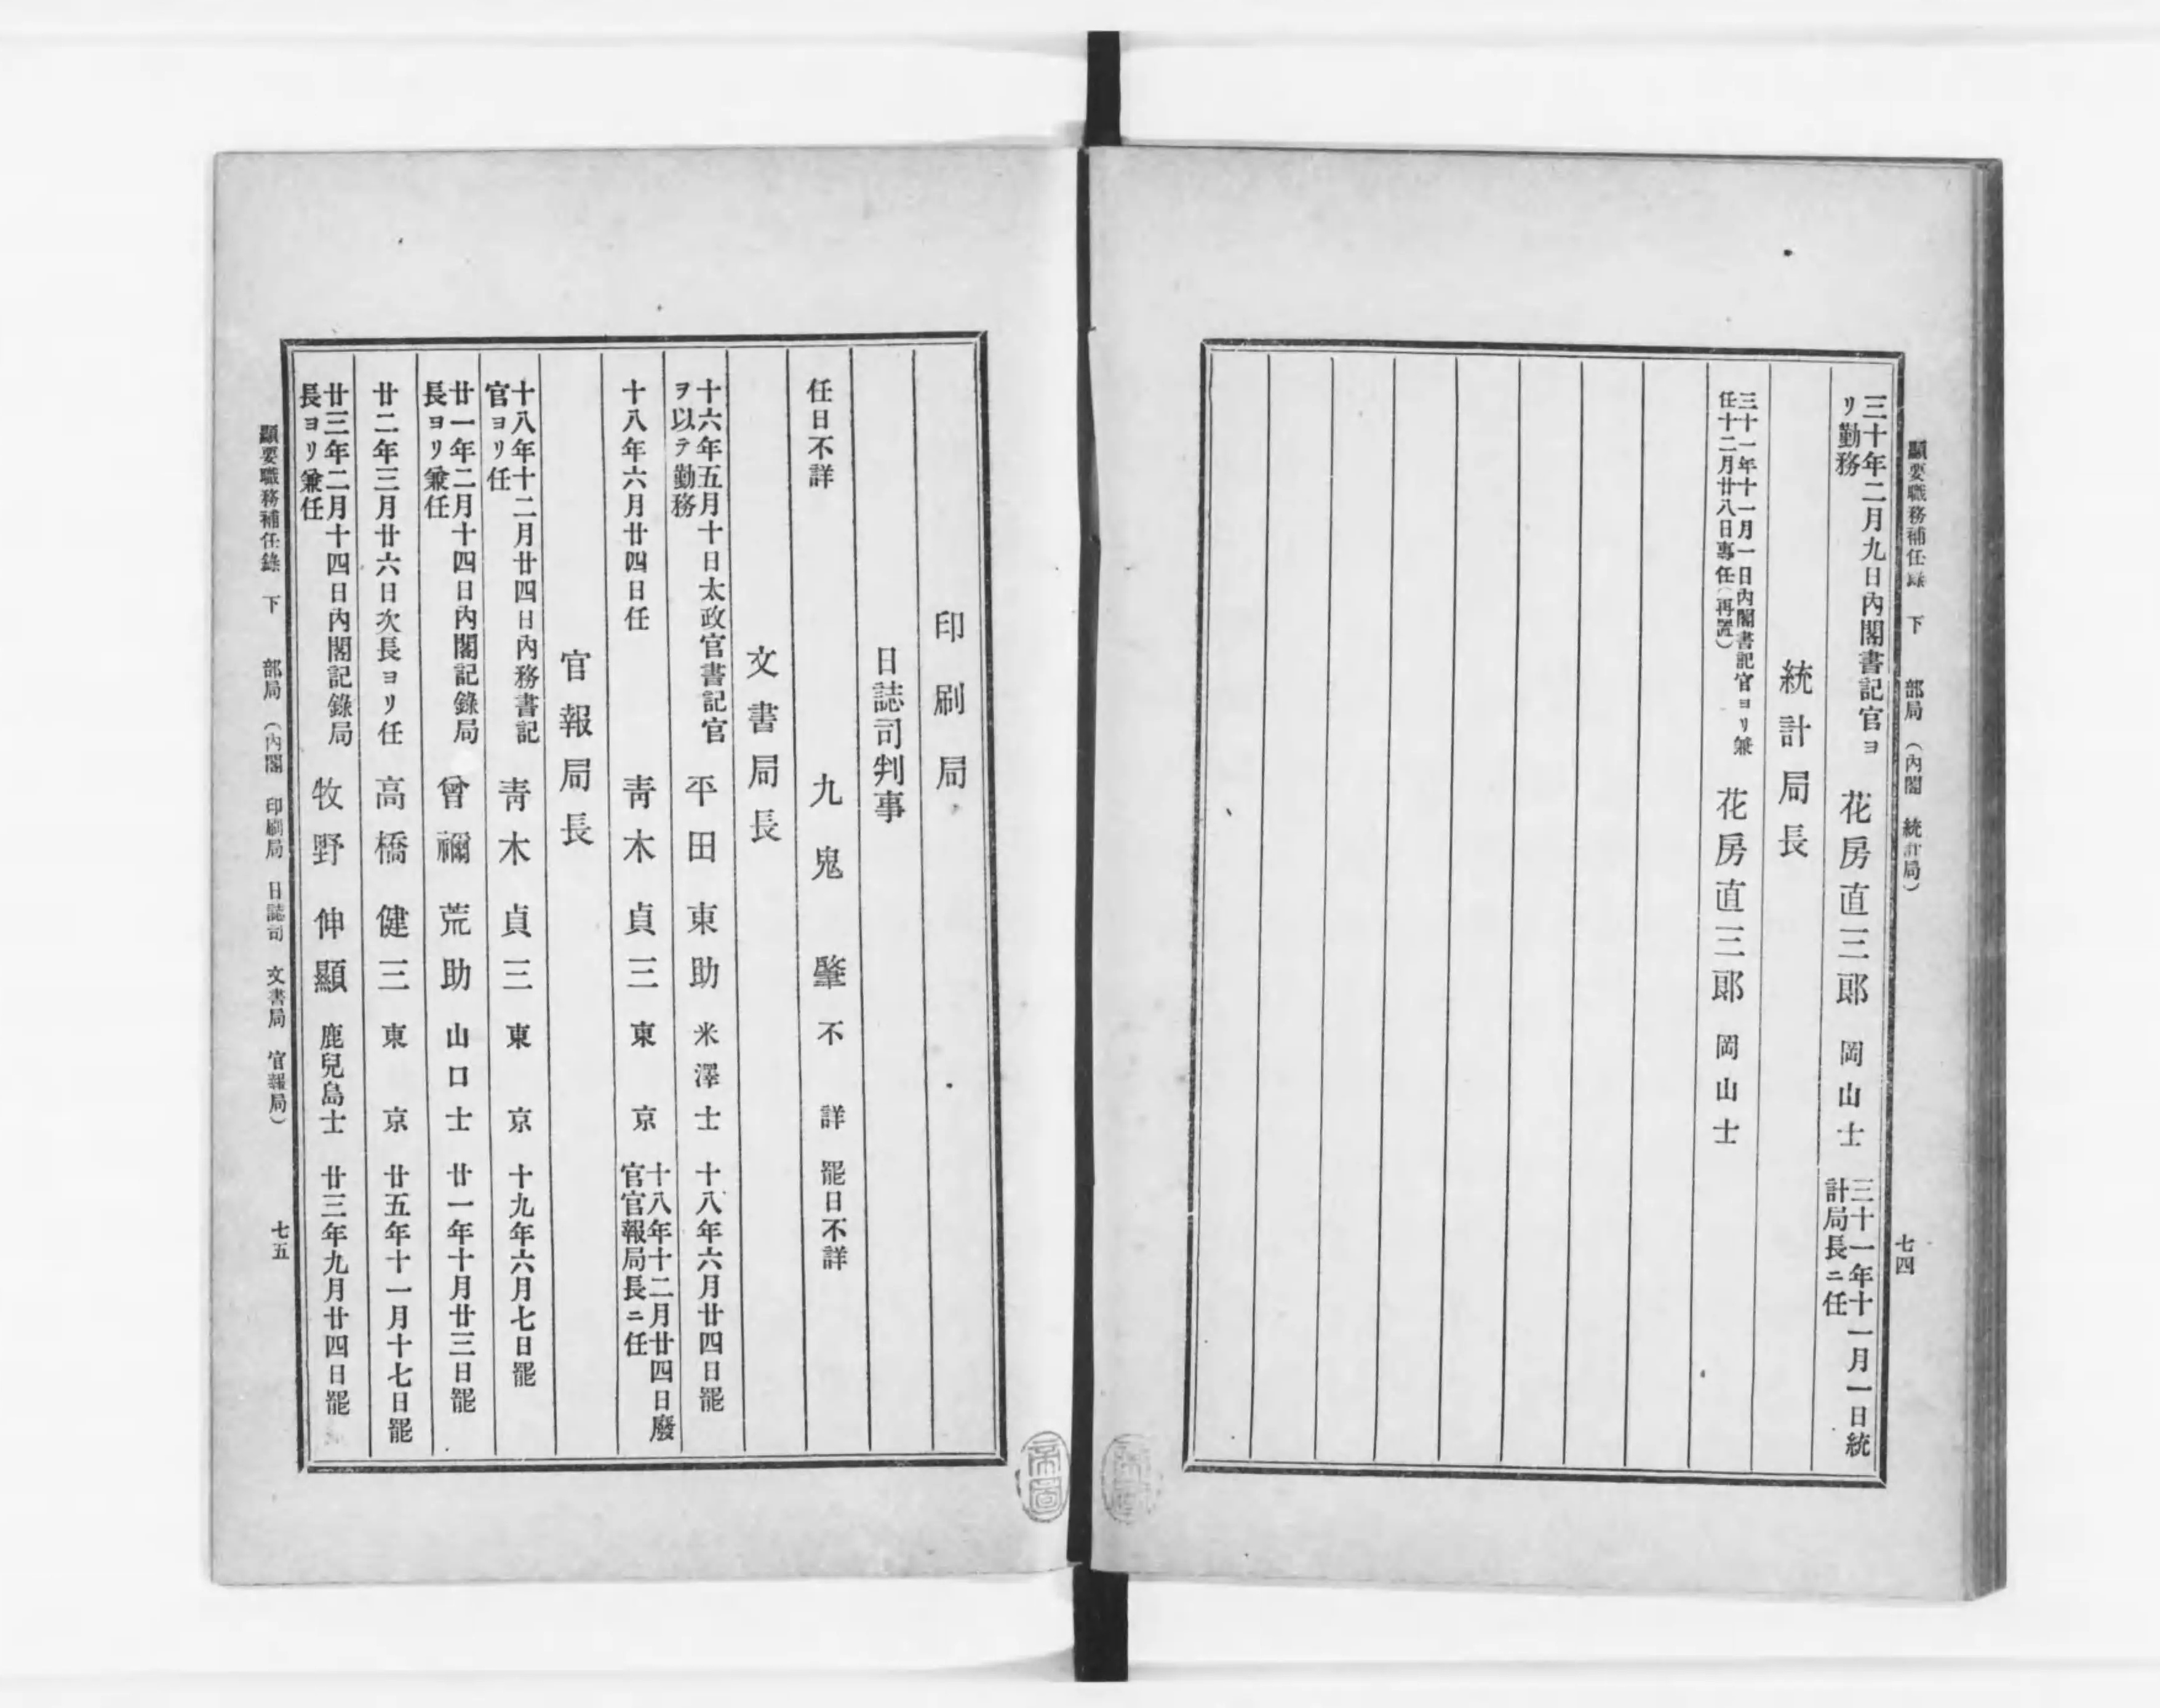 顯要職務補任錄　下　部局（內閣　統計局）　七四
三十年二月九日內閣書記官ヨ
リ勤務
花房直三郞　岡山士
三十一年十一月一日統
計局長ニ任
統計局長
三十一年十一月一日內閣書記官ヨリ兼
任十二月廿八日專任（再置）
花房直三郞　岡山士
印刷局
日誌司判事
任日不詳　九鬼　肇　不詳　罷日不詳
文書局長
十六年五月十日太政官書記官
ヲ以テ勤務
平田東助　米澤士　十八年六月廿四日罷
十八年六月廿四日任　靑木貞三　東京
十八年十二月廿四日廢
官官報局長ニ任
官報局長
十八年十二月廿四日內務書記
官ヨリ任
靑木貞三　東京　十九年六月七日罷
廿一年二月十四日內閣記錄局
長ヨリ兼任
曾禰荒助　山口士　廿一年十月廿三日罷
廿二年三月廿六日次長ヨリ任　高橋健三　東京　廿五年十一月十七日罷
廿三年二月十四日內閣記錄局
長ヨリ兼任
牧野伸顯　鹿兒島士　廿三年九月廿四日罷
顯要職務補任錄　下　部局（內閣　印刷局　日誌司　文書局　官報局）　七五
帝圖